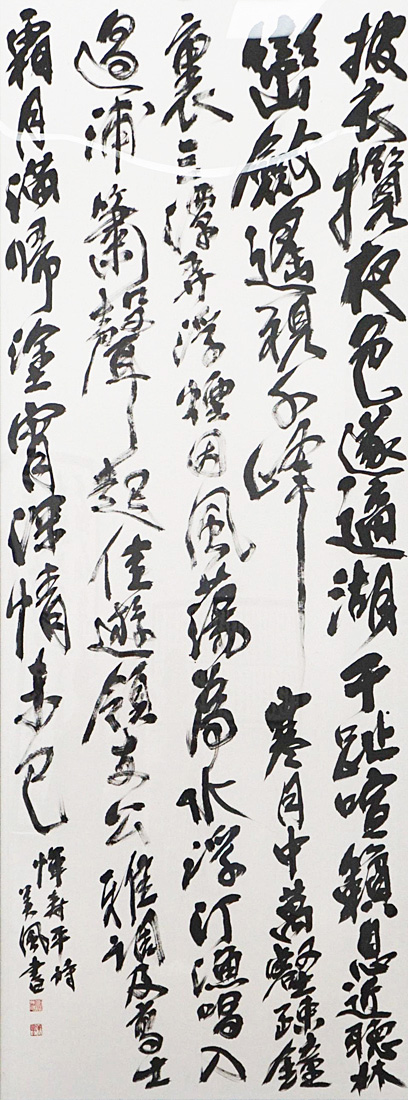 披衣攬夜色遂適湖干趾喧籟息近聽林
巒斂遙視千峰寒月中萬壑疎鐘
裏三潭弄浮煙因風蕩為水浮汀漁唱入
過浦簫聲起佳遊領支公雅調及高士
霜月滿歸塗宵深情未已
惲壽平詩
風書